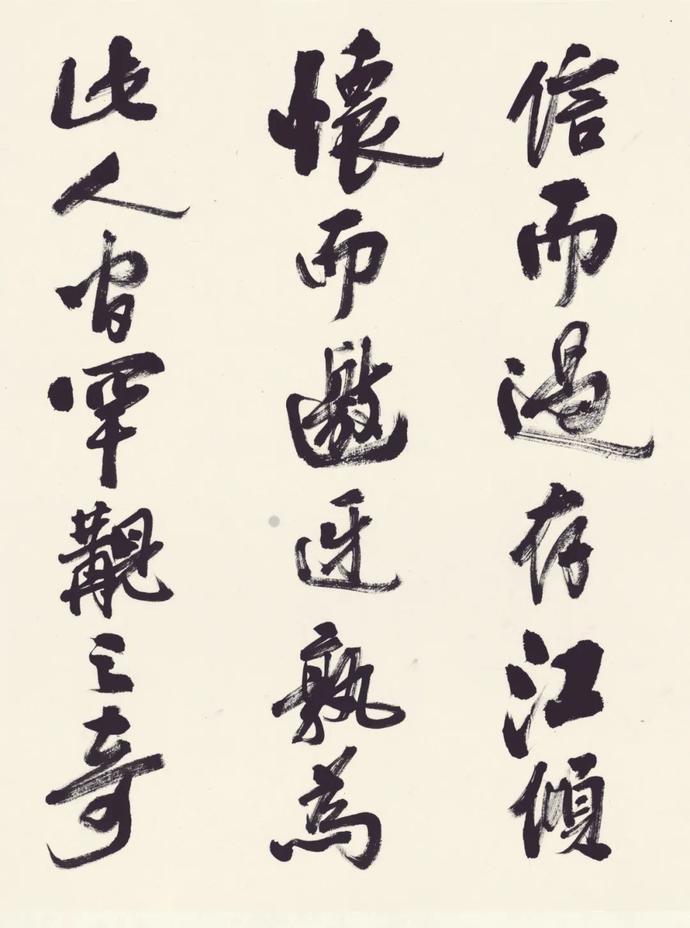 信而過存江傾
懷而邀迓孰為
此人皆罕覯之奇